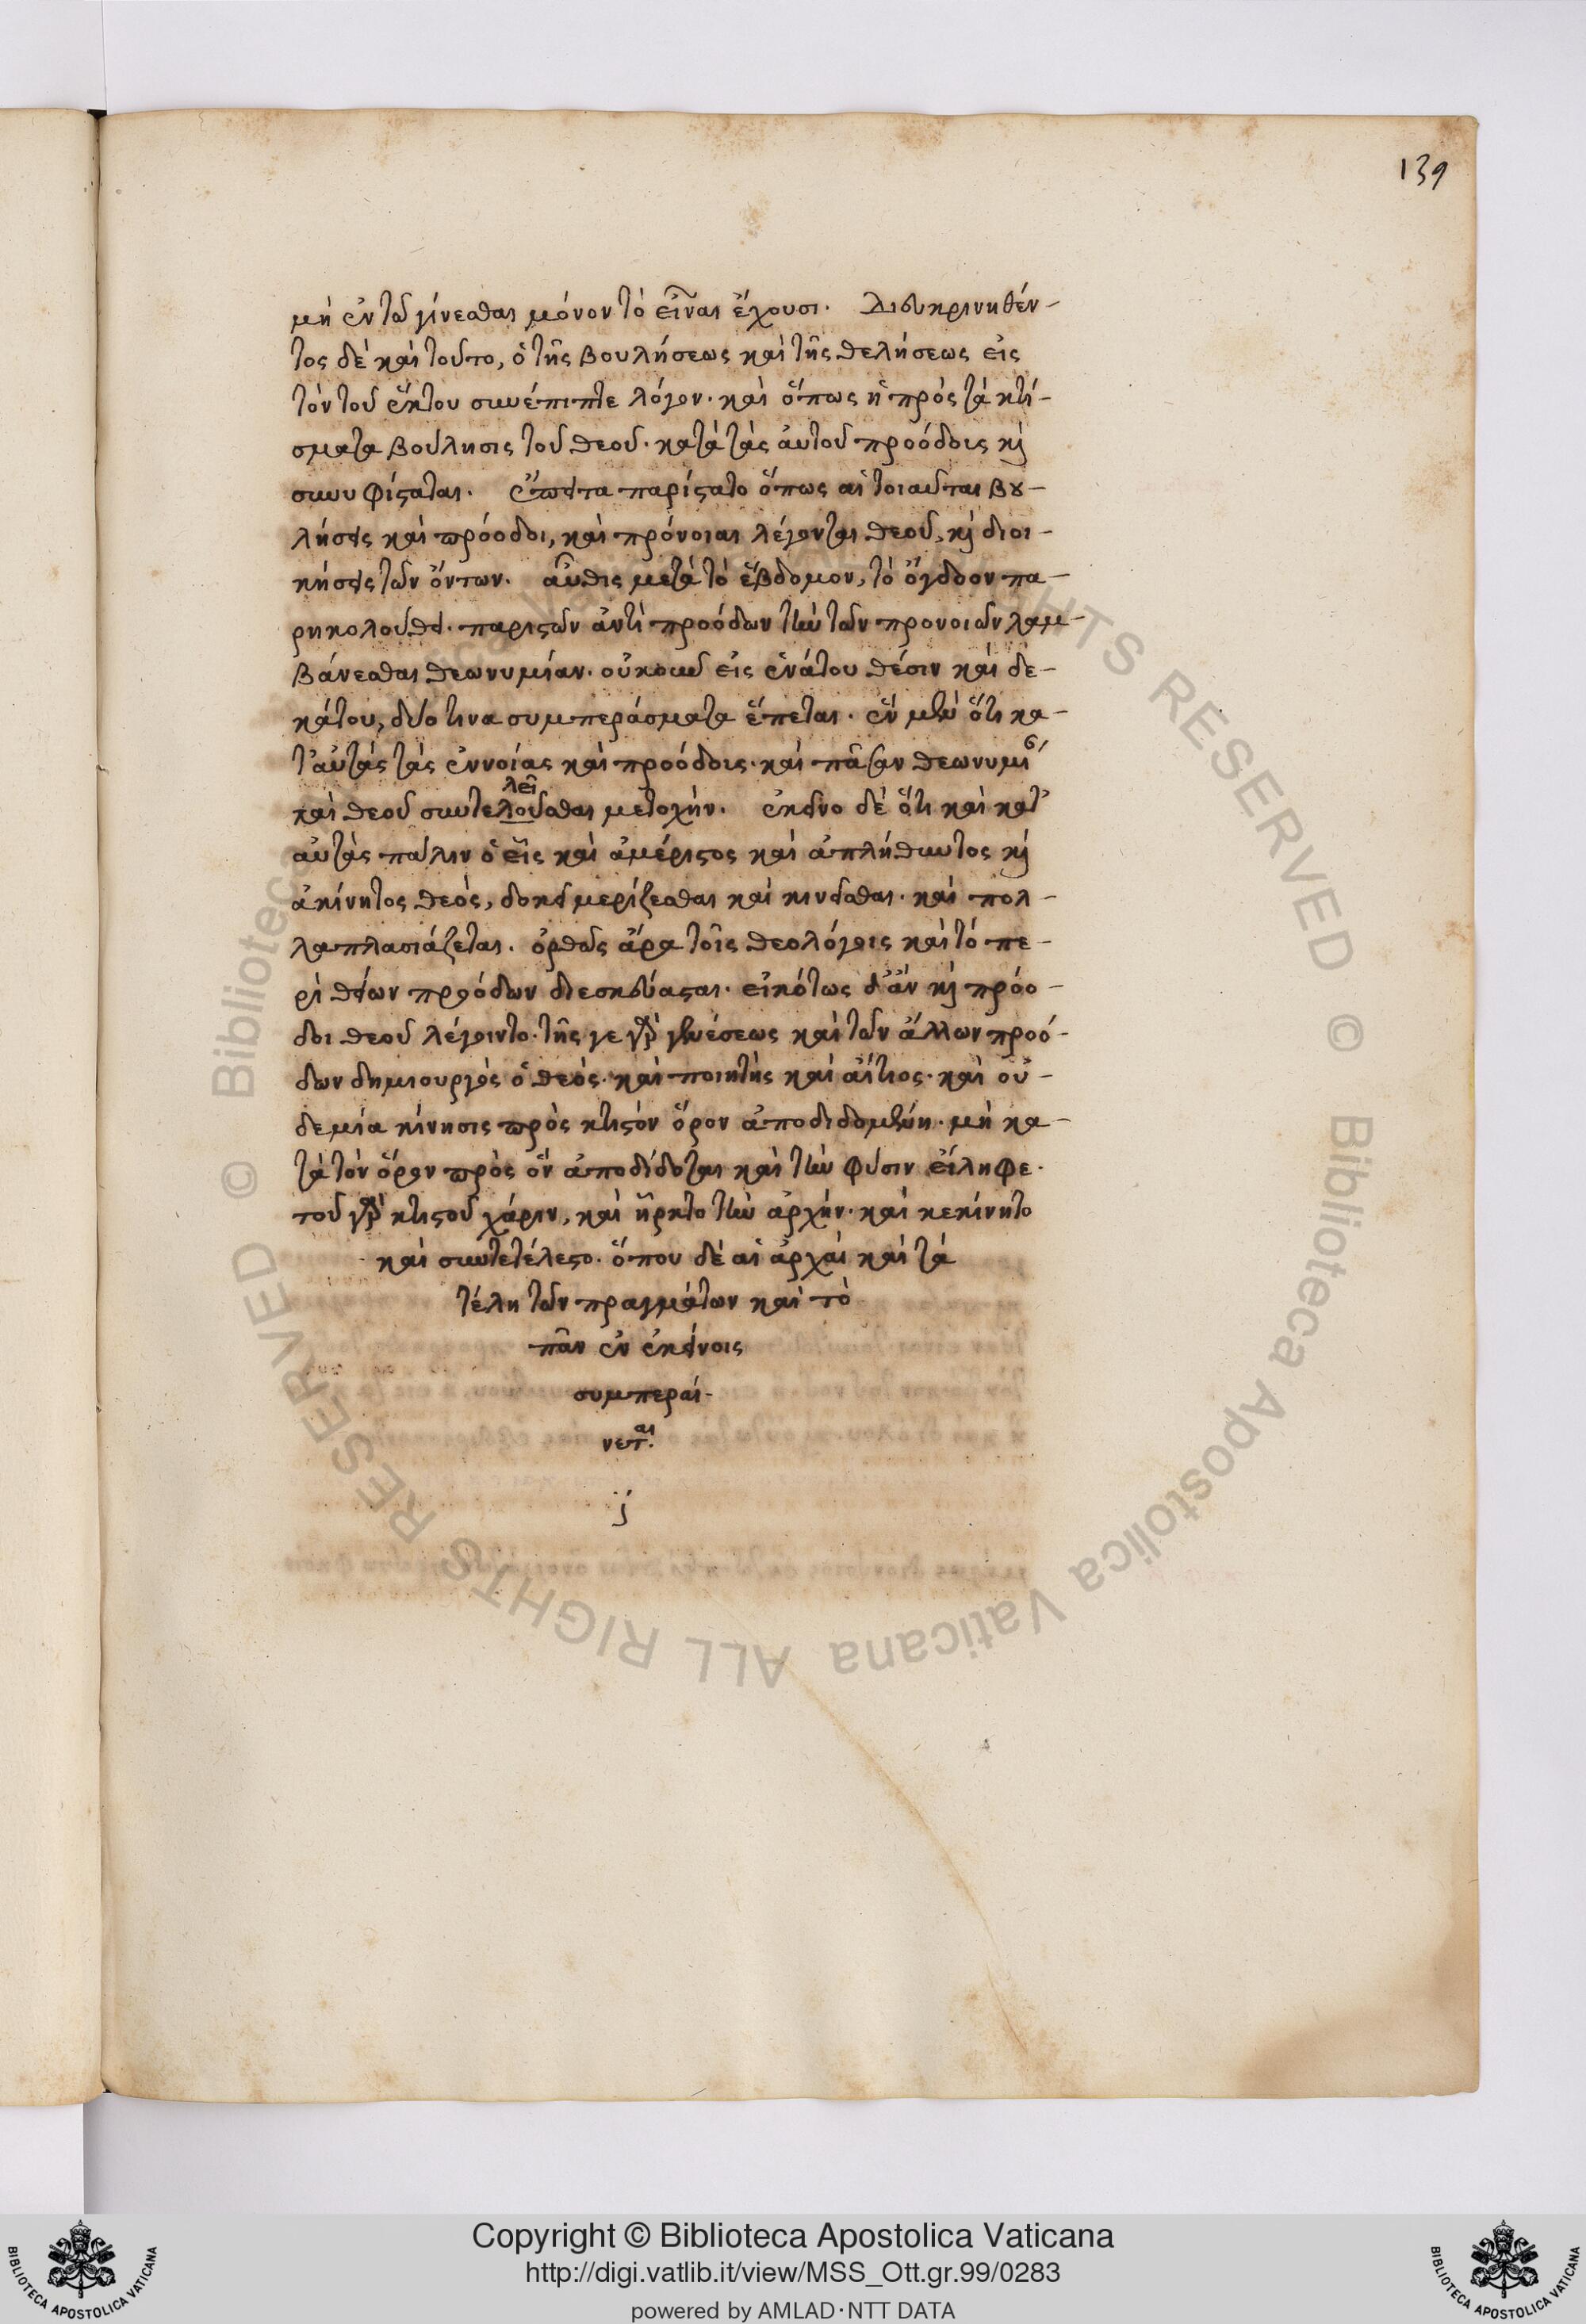 139
μὴ ἐν τῷ γίνεσθαι μόνον τὸ εἶναι ἔχουσι. Διευκρινηθέν-
τος δὲ καὶ τούτο, ὁ τῆς βουλήσεως καὶ τῆς θελήσεως εἰς
τὸν τοῦ ἕκτου συνέπιπτε λόγον· καὶ ὅπως ἡ πρὸς τὰ κτί-
σματα βούλησις τοῦ θεοῦ· κατὰ τὰς αὐτοῦ προόδοις καὶ
συνυφίσταται. ἔπειτα παρίστατο ὅπως αἱ τοιαῦται βου-
λήσεις καὶ πρόοδοι, καὶ πρόνοιαι λέγονται θεοῦ, καὶ διοι-
κήσεις τῶν ὄντων. αὖθις μετὰ τὸ ἕβδομον, τὸ ὄγδοον πα-
ρηκολούθει· παριστῶν ἀντὶ προόδων τὴν τῶν προνοιῶν λαμ-
βάνεσθαι θεωνυμίαν· οὐκοῦν εἰς ἐνάτου θέσιν καὶ δε-
κάτου, δύο τινα συμπεράσματα ἕπεται· ἓν μὲν ὅτι κα-
τ' αὐτὰς τὰς ἐννοίας καὶ προόδοις· καὶ πᾶσαν θεωνυμί
λεῖ
καὶ θεοῦ συντελοῦσθαι μετοχήν. ἐκεῖνο δὲ ὅτι καὶ κατ'
αὐτὰς πάλιν ὁ εἷς καὶ ἀμέριστος καὶ ἀπλήθυντος καὶ
ἀκίνητος θεὸς, δοκεῖ μερίζεσθαι καὶ κινεῖσθαι· καὶ πολ-
λαπλασιάζεται. ὀρθῶς ἄρα τοῖς θεολόγοις καὶ τὸ πε-
ρὶ θείων προόδων διεσκεύασται. εἰκότως δ' ἂν καὶ πρόο-
δοι θεοῦ λέγοιντο· τῆς γε γὰρ γενέσεως καὶ τῶν ἄλλων προό-
δων δημιουργὸς ὁ θεός· καὶ ποιητὴς καὶ αἴτιος· καὶ οὐ-
δεμία κίνησις πρὸς κτιστὸν ὅρον ἀποδιδομένη· μὴ κα-
τὰ τὸν ὅρον πρὸς ὃν ἀποδίδοται καὶ τὴν φύσιν εἴληφε·
τοῦ γὰρ κτιστοῦ χάριν, καὶ ἤρκτο τὴν ἀρχήν· καὶ κεκίνητο
καὶ συντετέλεστο· ὅπου δὲ αἱ ἀρχαὶ καὶ τὰ
τέλη τῶν πραγμάτων καὶ τὸ
πᾶν ἐν ἐκείνοις
συμπεραί-
νεται.
Copyright © Biblioteca Apostolica Vaticana
http://digi.vatlib.it/view/MSS_Ott.gr.99/0283
powered by AMLAD·NTT DATA